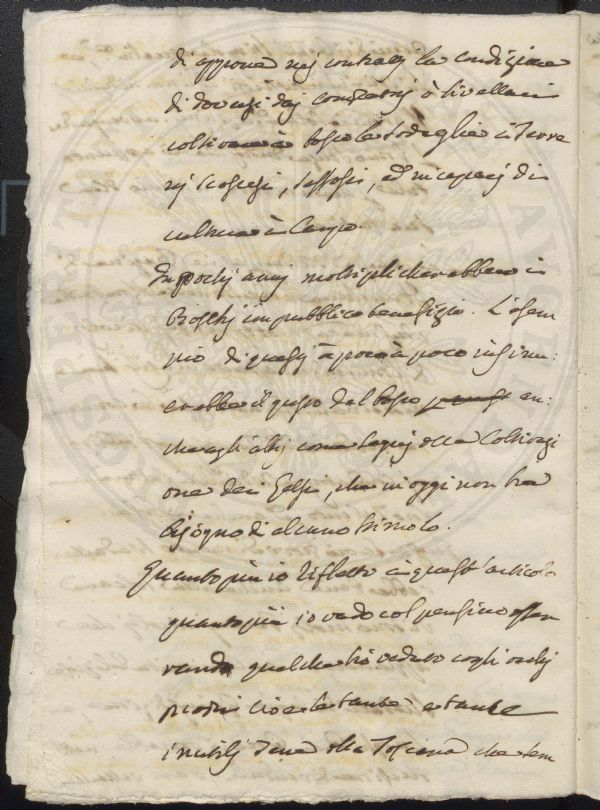 di apporre nej contratti la condizione
di doversi daj conduttorj ò livellarj
coltivare à bosco le sodaglie ò Terre
nj scoscesi, sassosi, ed incapacj di
cultura à Campo.
In pochj annj moltiplicherebbero i
Boschj in pubblico benefizio. L'esem
pio di questj à poco à poco insinu:
erebbe il gusto del bosco an:
che agli altrj come seguj della Coltivazi
one dei Gelsi, che in oggi non ha
bisogno di alcuno stimolo.
Quanto più io rifletto à quest'articolo
quanto più io vado col pensiero osser
vando quel che hò veduto cogli occhj
proprj cioè le tante e tante
inutilj Terre della Toscana che sem